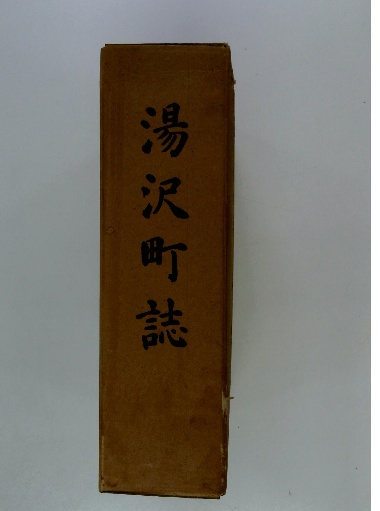 湯沢町誌